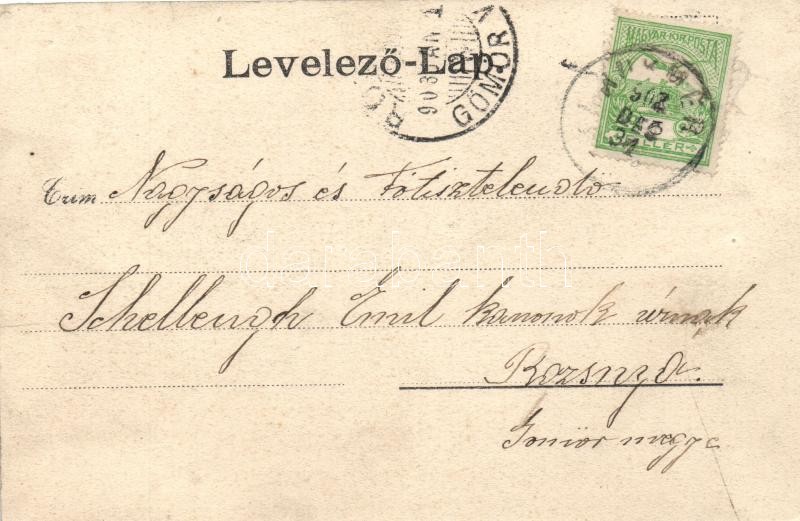 Levelező-Lap
GÖMÖR
903 JAN 1
MAGYAR KIR. POSTA
902
DEC
31
Czím Nagyságos és Főtisztelendő
darabanth
Schellengh Emil kanonok úrnak
Rozsnyó.
Gömör megye